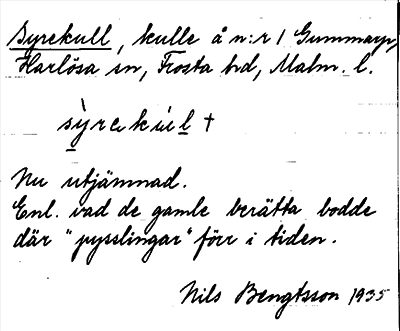 Syrekull, kulle å n:r 1 Gummarp,
Harlösa sn, Frosta hd, Malm. l.
sỳrekúl †
Nu utjämnad.
Enl. vad de gamle berätta bodde
där "pysslingar" förr i tiden.
Nils Bengtsson 1935